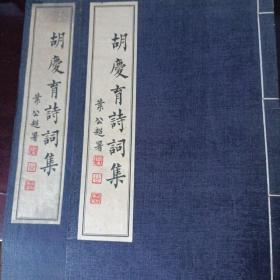 胡慶育詩詞集
葉公超署
胡慶育詩詞集
葉公超署